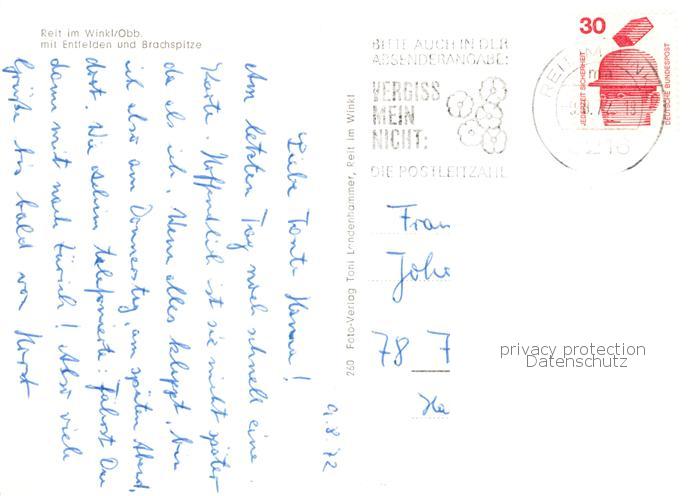 Reit im Winkl/Obb.
mit Entfelden und Brachspitze
9.8.72
Liebe Tante Hanna!
Am letzten Tag noch schnell eine
Karte. Hoffentlich ist sie nicht später
da als ich. Wenn alles klappt, bin
ich also am Donnerstag, am späten Abend,
dort. Wie schon telefonierte: Fährst Du
dann mit nach Zürich! Also viele
Grüße bis bald von Horst
260 Foto-Verlag Toni Lendenhammer, Reit im Winkl
BITTE AUCH IN DER
ABSENDERANGABE:
VERGISS
MEIN
NICHT:
DIE POSTLEITZAHL
REIT IM WINKL
8216
30
JEDERZEIT SICHERHEIT
DEUTSCHE BUNDESPOST
Frau
Joha
78 7
privacy protection
Datenschutz